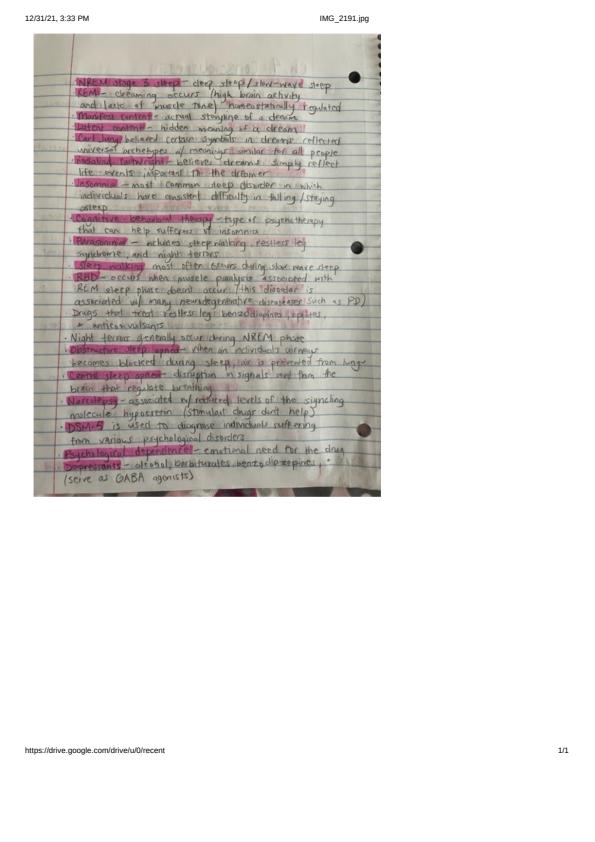 12/31/21, 3:33 PM
IMG_2191.jpg
· NREM stage 3 sleep - deep sleep/slow-wave sleep
· REM - dreaming occurs (high brain activity
and lack of muscle tone) homeostatically regulated
· Manifest content - actual storyline of a dream
· Latent content - hidden meaning of a dream
· Carl Jung believed certain symbols in dreams reflected
universal archetypes w/ meanings similar for all people
· Rosalind Cartwright - believes dreams simply reflect
life events important to the dreamer
· Insomnia - most common sleep disorder in which
individuals have consistent difficulty in falling/staying
asleep
· Cognitive-behavioral therapy - type of psychotherapy
that can help sufferers of insomnia
· Parasomnia - includes sleepwalking, restless leg
syndrome, and night terrors
· Sleep walking most often occurs during slow wave sleep
· RBD - occurs when muscle paralysis associated with
REM sleep phase doesnt occur (this disorder is
associated w/ many neurodegenerative diseases such as PD)
Drugs that treat restless leg: benzodiapines, opiates,
+ anticonvulsants
· Night terrors generally occur during NREM phase
· Obstructive sleep apnea - when an individuals airway
becomes blocked during sleep, air is prevented from lungs
· Central sleep apnea - disruption in signals sent from the
brain that regulate breathing
· Narcolepsy - associated w/ reduced levels of the signaling
molecule hypocretin (stimulant drugs dont help)
· DSM-5 is used to diagnose individuals suffering
from various psychological disorders
· Psychological dependence - emotional need for the drug
Depressants - alcohol, barbiturates, benzodiazepines,
(serve as GABA agonists)
https://drive.google.com/drive/u/0/recent
1/1